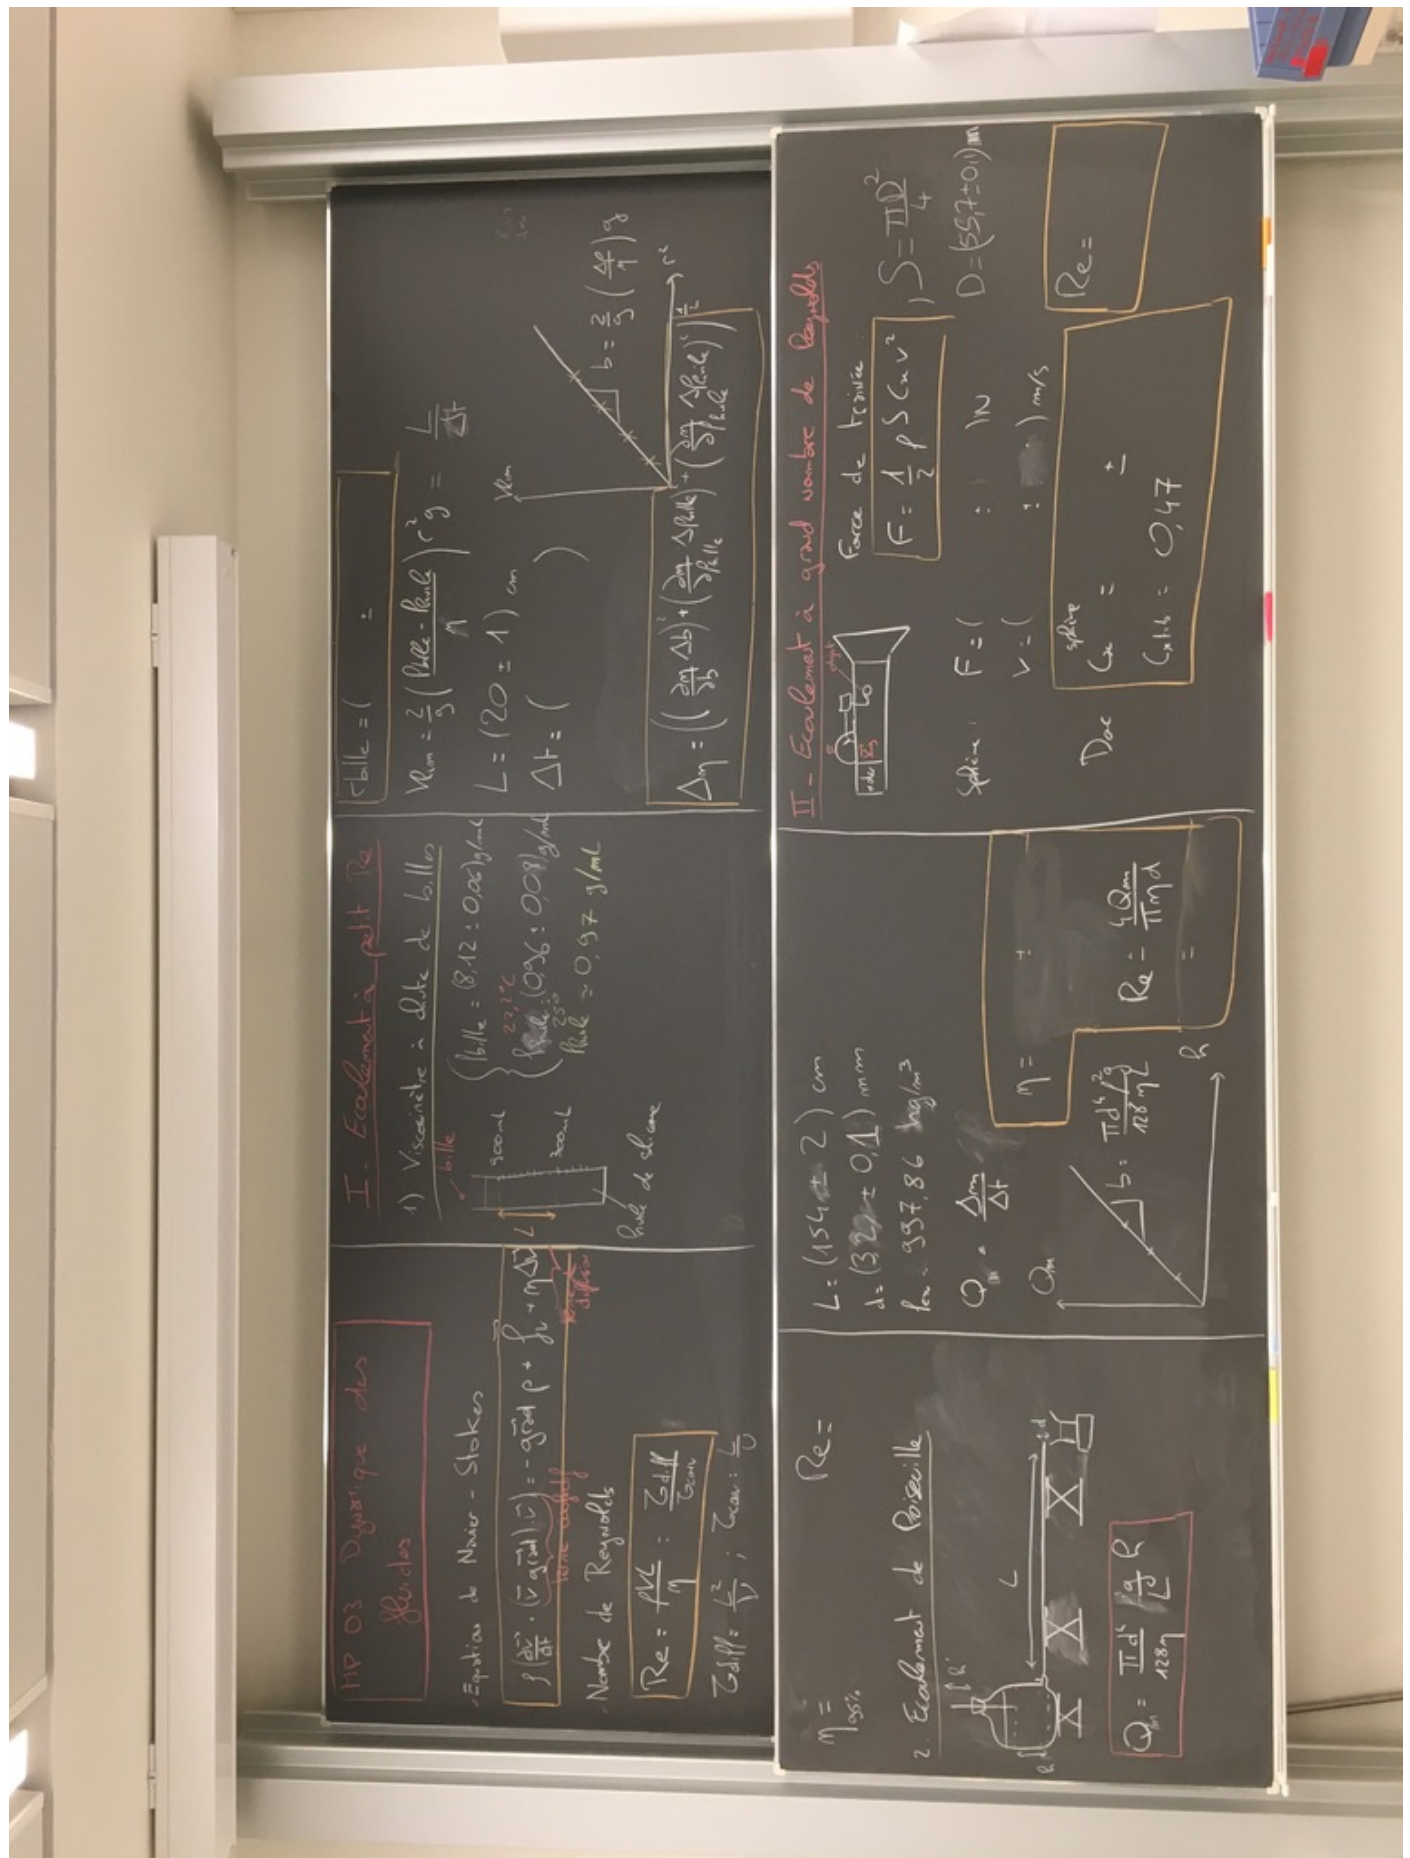 MP 03 Dynamique des
fluides
• Equation de Navier-Stokes
ρ(∂v/∂t + (v.grad).v) = -grad p + fv + ηΔv
terme convectif
terme de diffusion
• Nombre de Reynolds
Re = ρVL/η = τdiff/τconv
τdiff = L²/ν ; τconv = L/U
I - Ecoulement à petit Re
1) Viscosimètre à chute de billes
bille
900mL
300mL
L
huile de silicone
ρbille = (8,12 ± 0,06) g/mL
22,2°C
ρhuile = (0,96 ± 0,008) g/mL
25°
ρhuile = 0,97 g/mL
rbille = ( ±
vlim = 2/9 (ρbille - ρhuile / η) r² g = L/Δt
L = (20 ± 1) cm
Δt = ( )
vlim
b = 2/9 (Δρ/η) g
r²
Δη = ((∂η/∂b Δb)² + (∂η/∂ρbille Δρbille)² + (∂η/∂ρhuile Δρhuile)²)^1/2
η95% =
Re =
2. Ecoulement de Poiseuille
h
h'
L
d
Qm = πd⁴/128η ρ²g/L h
L = (154 ± 2) cm
d = (3,2 ± 0,1) mm
ρeau = 997,86 kg/m³
Qm = Δm/Δt
Qm
b = πd⁴ρ²g/128ηL
h
η = ±
Re = 4Qm/πηd
=
II - Ecoulement à grand nombre de Reynolds
objet
Force de trainée :
F = 1/2 ρ S Cx v² , S = πD²/4
D = (55,7 ± 0,1) m
Sphère : F = ( ± ) N
v = ( ± ) m/s
Doc
Cx sphère = ±
Cxtab = 0,47
Re =